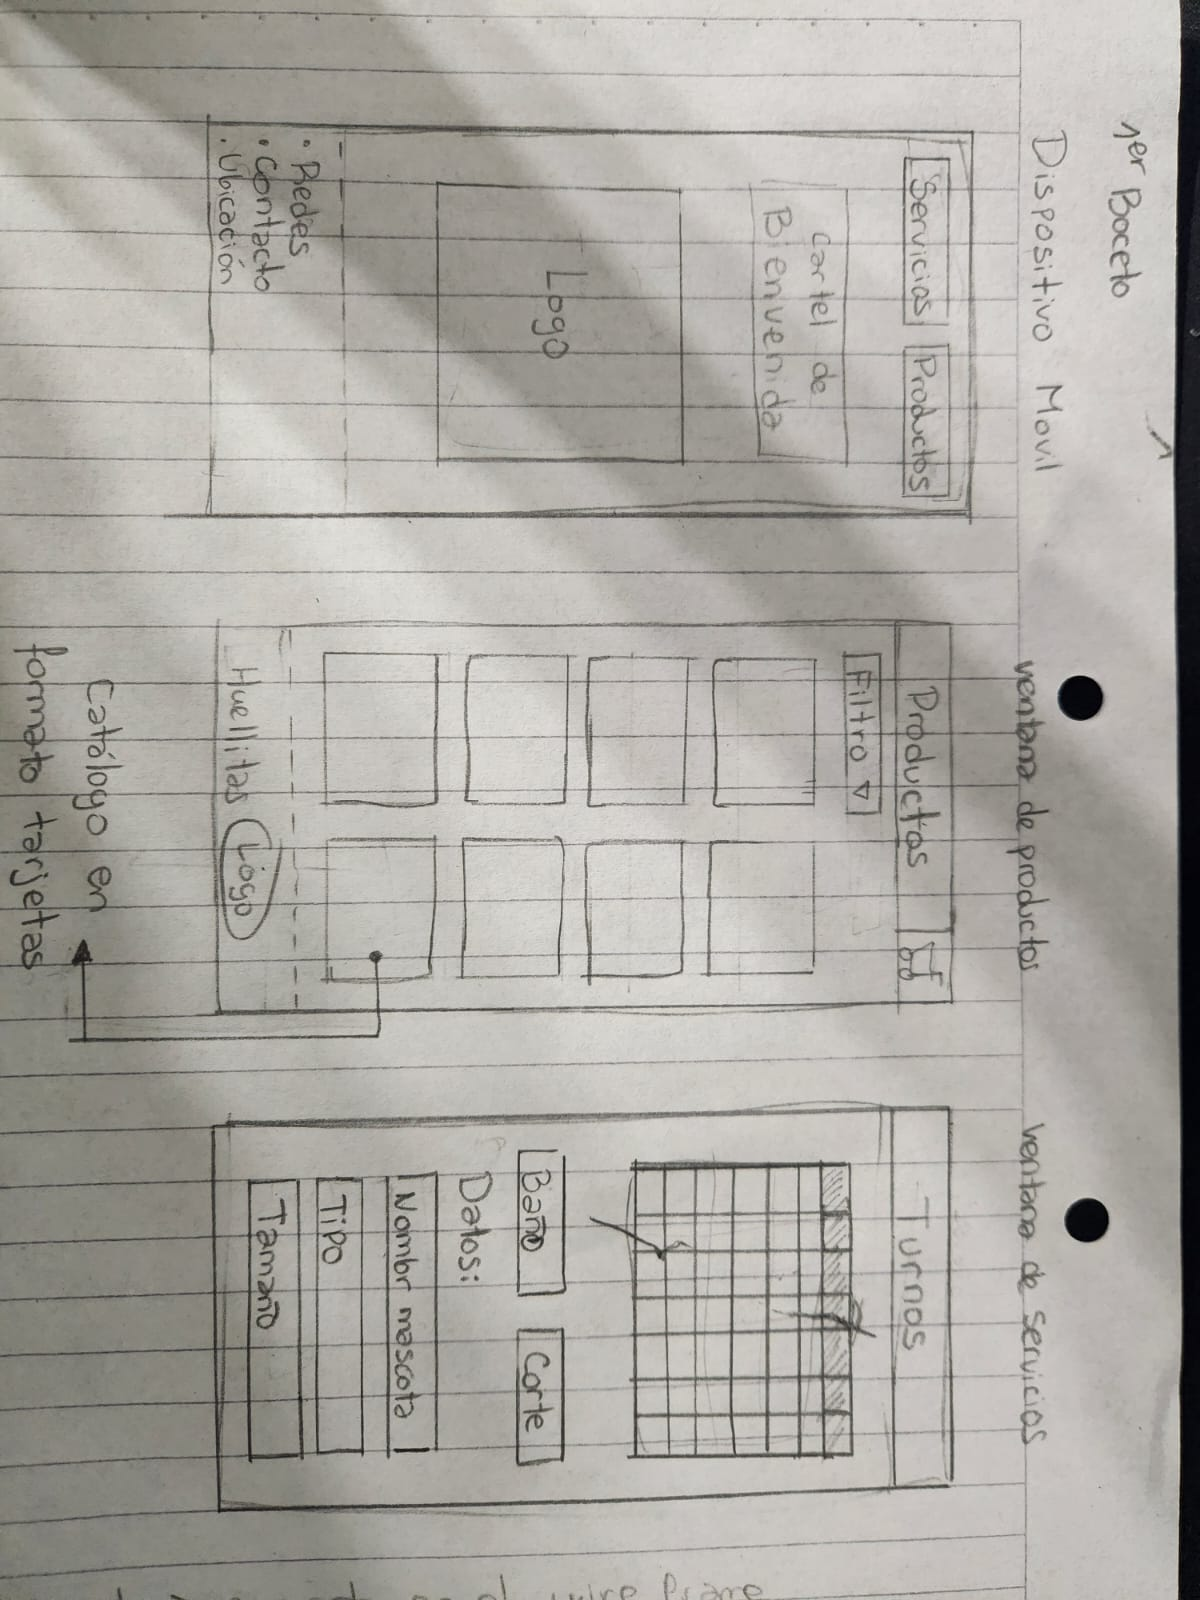 1er Boceto
Dispositivo Movil
Servicios
Productos
Cartel de
Bienvenida
Logo
• Redes
• Contacto
• Ubicación
ventana de productos
Productos
Filtro
Huellitas Logo
Catálogo en
formato tarjetas
ventana de servicios
Turnos
Baño
Corte
Datos:
Nombr mascota
Tipo
Tamaño